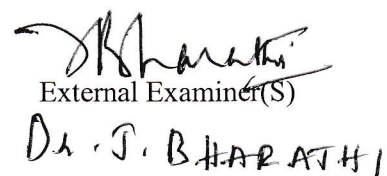 JBharathi
External Examiner(S)
Dr. J. BHARATHI